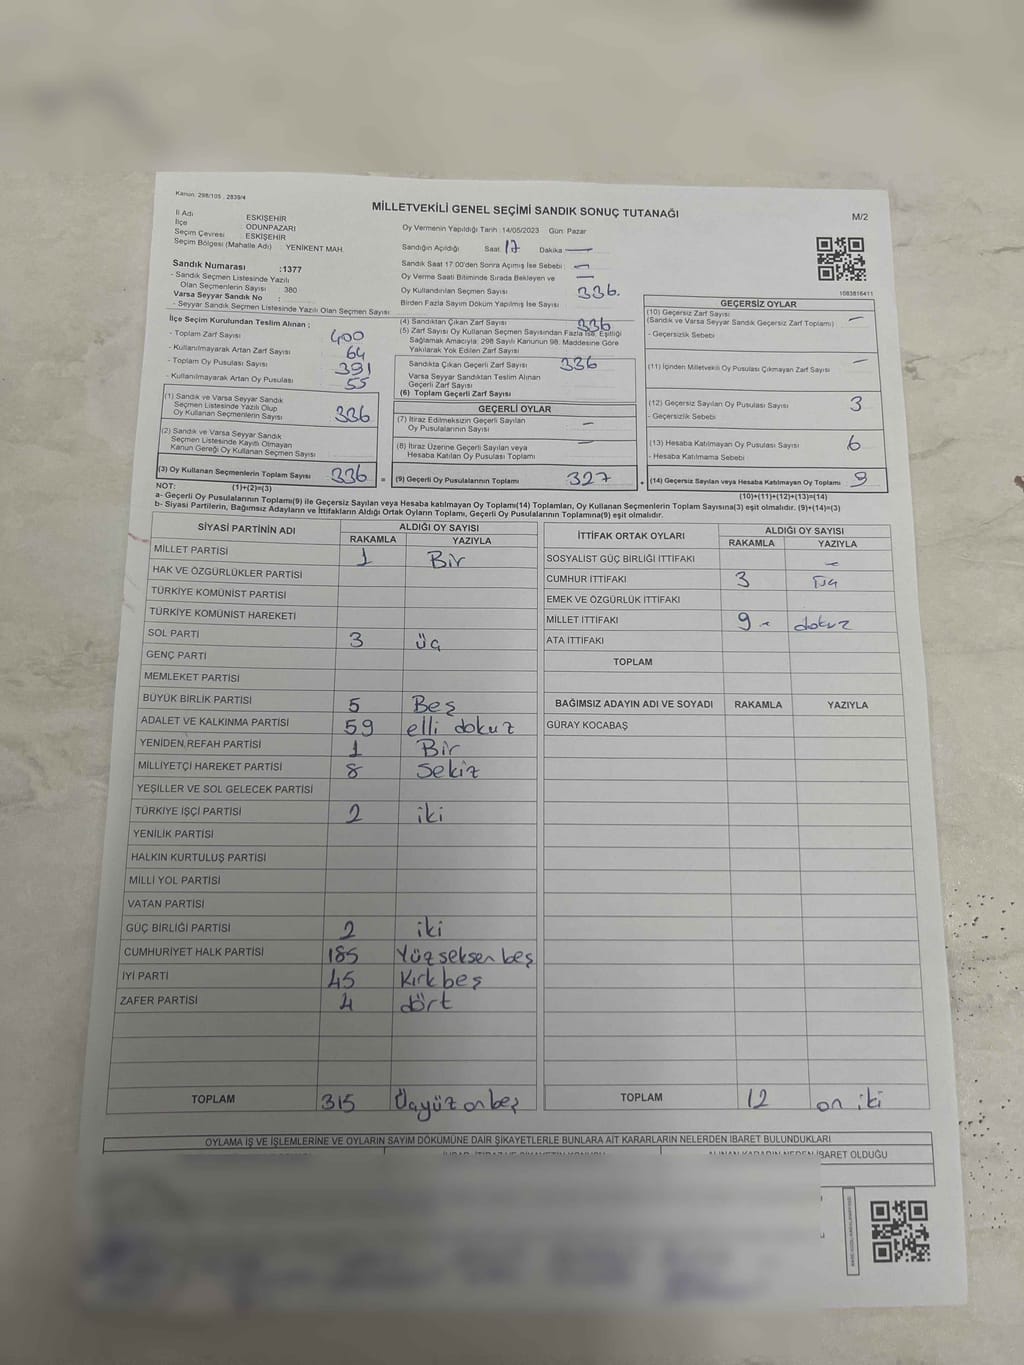 Kanun: 298/105 , 2839/4
MİLLETVEKİLİ GENEL SEÇİMİ SANDIK SONUÇ TUTANAĞI
M/2
İl Adı ESKİŞEHİR
İlçe ODUNPAZARI
Seçim Çevresi ESKİŞEHİR
Seçim Bölgesi (Mahalle Adı) : YENİKENT MAH.
Oy Vermenin Yapıldığı Tarih :14/05/2023 Gün: Pazar
Sandığın Açıldığı Saat 17 Dakika —
Sandık Numarası :1377
- Sandık Seçmen Listesinde Yazılı
Olan Seçmenlerin Sayısı : 380
Varsa Seyyar Sandık No :
- Seyyar Sandık Seçmen Listesinde Yazılı Olan Seçmen Sayısı :
Sandık Saat 17:00'den Sonra Açımış İse Sebebi : —
Oy Verme Saati Bitiminde Sırada Bekleyen ve —
Oy Kullandırılan Seçmen Sayısı 336.
Birden Fazla Sayım Döküm Yapılmış İse Sayısı
1083816411
İlçe Seçim Kurulundan Teslim Alınan ;
- Toplam Zarf Sayısı 400
- Kullanılmayarak Artan Zarf Sayısı 64
- Toplam Oy Pusulası Sayısı 391
- Kullanılmayarak Artan Oy Pusulası 55
(1) Sandık ve Varsa Seyyar Sandık
Seçmen Listesinde Yazılı Olup
Oy Kullanan Seçmenlerin Sayısı 336
(2) Sandık ve Varsa Seyyar Sandık
Seçmen Listesinde Kayıtlı Olmayan
Kanun Gereği Oy Kullanan Seçmen Sayısı
(3) Oy Kullanan Seçmenlerin Toplam Sayısı 336 =
(4) Sandıktan Çıkan Zarf Sayısı 336
(5) Zarf Sayısı Oy Kullanan Seçmen Sayısından Fazla İse, Eşitliği
Sağlamak Amacıyla; 298 Sayılı Kanunun 98. Maddesine Göre
Yakılarak Yok Edilen Zarf Sayısı
Sandıkta Çıkan Geçerli Zarf Sayısı 336
Varsa Seyyar Sandıktan Teslim Alınan
Geçerli Zarf Sayısı
(6) Toplam Geçerli Zarf Sayısı
GEÇERLİ OYLAR
(7) İtiraz Edilmeksizin Geçerli Sayılan
Oy Pusulalarının Sayısı —
(8) İtiraz Üzerine Geçerli Sayılan veya
Hesaba Katılan Oy Pusulası Toplamı —
(9) Geçerli Oy Pusulalarının Toplamı 327 +
GEÇERSİZ OYLAR
(10) Geçersiz Zarf Sayısı
(Sandık ve Varsa Seyyar Sandık Geçersiz Zarf Toplamı) —
- Geçersizlik Sebebi :
(11) İçinden Milletvekili Oy Pusulası Çıkmayan Zarf Sayısı —
(12) Geçersiz Sayılan Oy Pusulası Sayısı 3
- Geçersizlik Sebebi :
(13) Hesaba Katılmayan Oy Pusulası Sayısı 6
- Hesaba Katılmama Sebebi :
(14) Geçersiz Sayılan veya Hesaba Katılmayan Oy Toplamı 9
NOT: (1)+(2)=(3)
(10)+(11)+(12)+(13)=(14)
a- Geçerli Oy Pusulalarının Toplamı(9) ile Geçersiz Sayılan veya Hesaba katılmayan Oy Toplamı(14) Toplamları, Oy Kullanan Seçmenlerin Toplam Sayısına(3) eşit olmalıdır. (9)+(14)=(3)
b- Siyasi Partilerin, Bağımsız Adayların ve İttifakların Aldığı Ortak Oyların Toplamı, Geçerli Oy Pusulalarının Toplamına(9) eşit olmalıdır.
SİYASİ PARTİNİN ADI ALDIĞI OY SAYISI
RAKAMLA YAZIYLA
MİLLET PARTİSİ 1 Bir
HAK VE ÖZGÜRLÜKLER PARTİSİ
TÜRKİYE KOMÜNİST PARTİSİ
TÜRKİYE KOMÜNİST HAREKETİ
SOL PARTİ 3 üç
GENÇ PARTİ
MEMLEKET PARTİSİ
BÜYÜK BİRLİK PARTİSİ 5 Beş
ADALET VE KALKINMA PARTİSİ 59 elli dokuz
YENİDEN REFAH PARTİSİ 1 Bir
MİLLİYETÇİ HAREKET PARTİSİ 8 Sekiz
YEŞİLLER VE SOL GELECEK PARTİSİ
TÜRKİYE İŞÇİ PARTİSİ 2 iki
YENİLİK PARTİSİ
HALKIN KURTULUŞ PARTİSİ
MİLLİ YOL PARTİSİ
VATAN PARTİSİ
GÜÇ BİRLİĞİ PARTİSİ 2 iki
CUMHURİYET HALK PARTİSİ 185 Yüzseksen beş
İYİ PARTİ 45 Kırk beş
ZAFER PARTİSİ 4 dört
TOPLAM 315 Üçyüz onbeş
İTTİFAK ORTAK OYLARI ALDIĞI OY SAYISI
RAKAMLA YAZIYLA
SOSYALİST GÜÇ BİRLİĞİ İTTİFAKI —
CUMHUR İTTİFAKI 3 üç
EMEK VE ÖZGÜRLÜK İTTİFAKI
MİLLET İTTİFAKI 9 - dokuz
ATA İTTİFAKI
TOPLAM
BAĞIMSIZ ADAYIN ADI VE SOYADI RAKAMLA YAZIYLA
GÜRAY KOCABAŞ
TOPLAM 12 on iki
OYLAMA İŞ VE İŞLEMLERİNE VE OYLARIN SAYIM DÖKÜMÜNE DAİR ŞİKAYETLERLE BUNLARA AİT KARARLARIN NELERDEN İBARET BULUNDUKLARI
ALINAN KARARIN NEDEN İBARET OLDUĞU